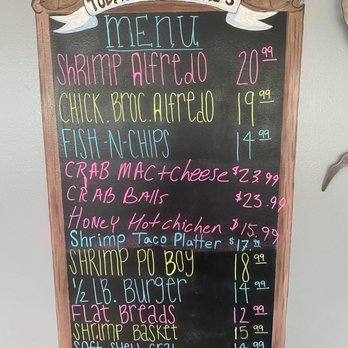 MENU
SHRIMP Alfredo 20.99
CHICK. BROC. Alfredo 19.99
FISH-N-CHIPS 14.99
CRAB MAC+Cheese $23.99
CRAB BAlls $23.99
Honey Hot chichen $15.99
Shrimp Taco Platter $17.99
SHRIMP PO BOY 18.99
1/2 LB. Burger 14.99
Flat Breads 12.99
SHRIMP BASKET 15.99